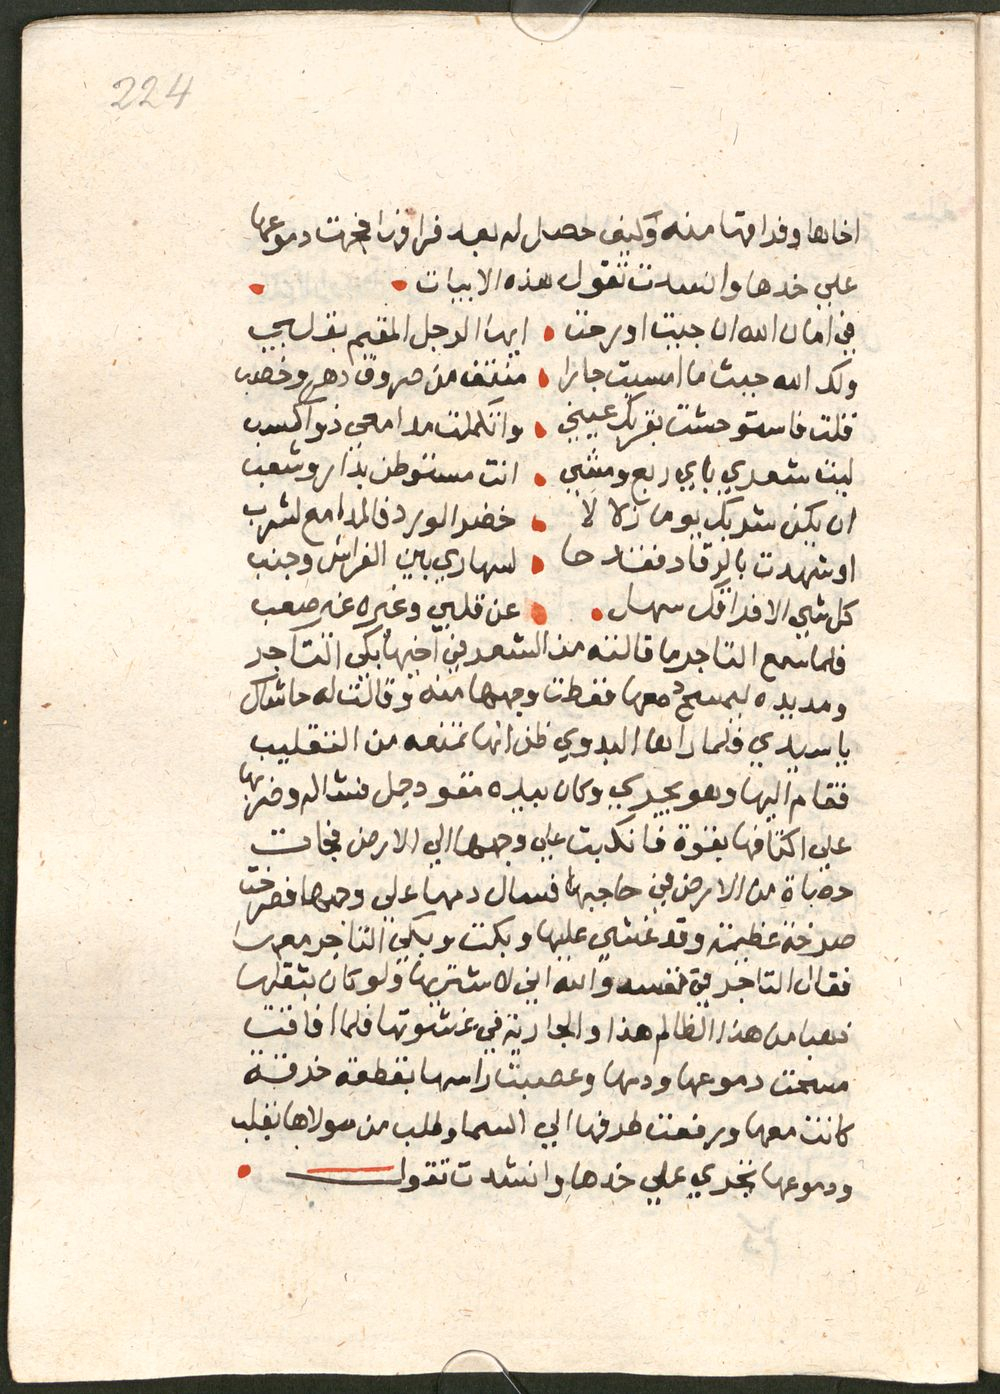 224
اخاها وفراقها منه وكيف حصل له بعد فراقها فجرت دموعها
علي خدها وانشدت تقول هذه الابيات
في امان الله ان جيت او رحت • ايها الرجل المقيم بقلبي
ولك الله حيث ما امسيت جارا • منقذ من صروف دهر وخصب
قلت فاستوحشت بقربك عيني • وانكملت مدامعي ذو اكسب
ليت شعري باي ربع ومشي • انت مستوطن بدار وشعب
ان يكن شربك يوما زلالا • خضر الورد فالمدامع لشرب
او شهدت بالرقاد فغند حا • لسهاري بين الفراش وجنب
كل شي الا فراقك سهل • عن قلبي وغيره غير صعب
فلما سمع التاجر ما قالته من الشعر في اخيها بكي التاجر
ومد يده ليمسح دمعها فغطت وجهها منه وقالت له حاشاك
يا سيدي فلما راها البدوي ظن انها تمنعه من التقليب
فقام اليها وهو يجري وكان بيده مقود جمل فشاله وضربها
علي اكتافها بقوة فانكبت علي وجهها الي الارض فجات
حصاة من الارض في حاجبها فسال دمها علي وجهها فصرخت
صرخة عظيمة وقد غشي عليها وبكت وبكي التاجر معها
فقال التاجر في نفسه والله اني لاشتريها ولو كان بثقلها
ذهبا من هذا الظالم هذا والجارية في غشوتها فلما افاقت
مسحت دموعها ودمها وعصبت راسها بقطعة خرقة
كانت معها ورفعت طرفها الي السما وطلب من مولاها بقلب
ودموعها تجري علي خدها وانشدت تقول